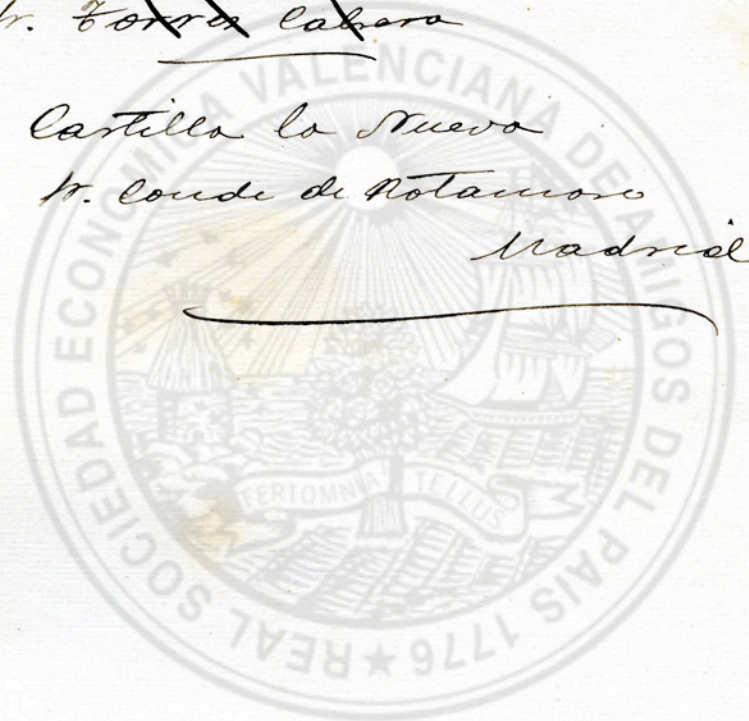 Sr. Torres Cabrera
Castilla la Nueva
Sr. Conde de Retamoso
Madrid
REAL SOCIEDAD ECONOMICA VALENCIANA DE AMIGOS DEL PAIS 1776 ★
FERTOMNIA TELLUS